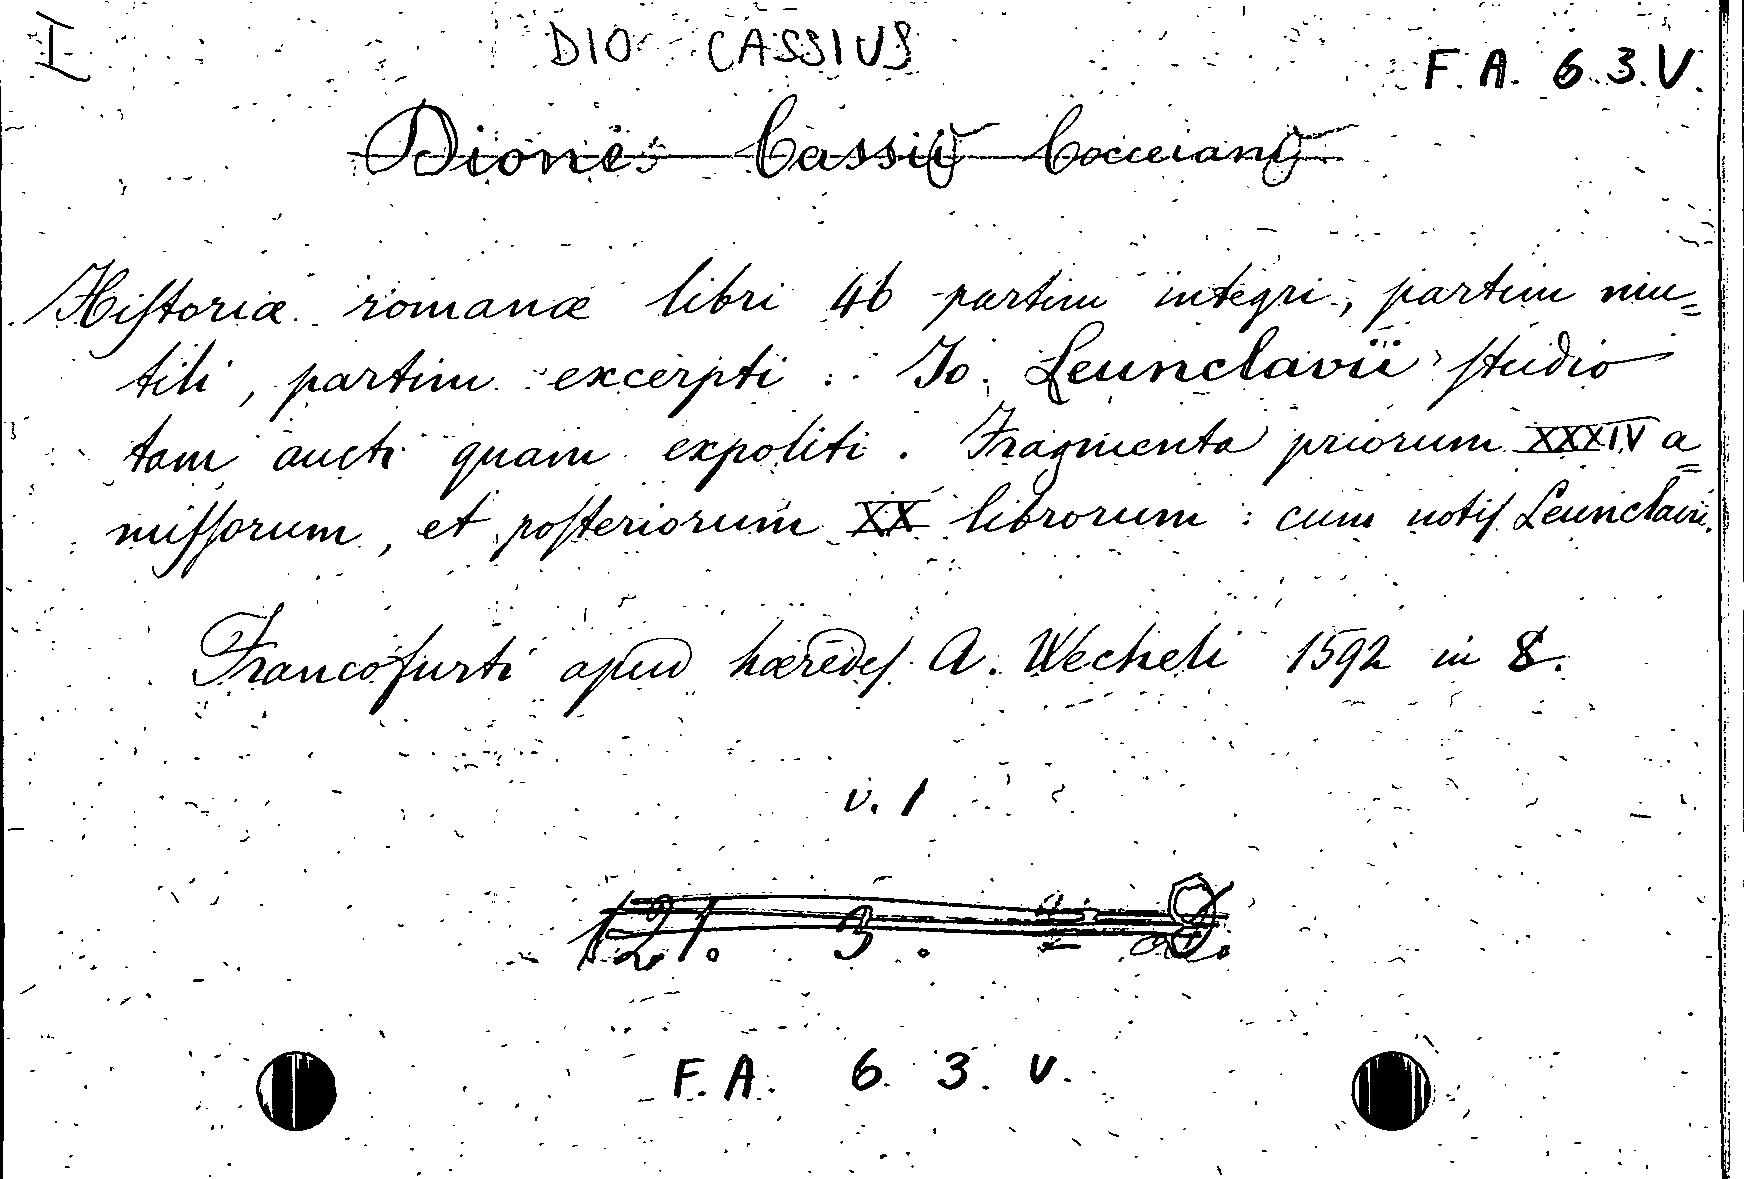 I DIO CASSIUS F. A. 6. 3. V.
Dionis Cassij Cocceianj
Historiæ romanæ libri 46 partim integri, partim mu=
tili, partim excerpti : Jo. Leunclavii studio
tam aucti quam expoliti. Fragmenta priorum XXXIV a=
missorum, et posteriorum XX librorum : cum notis Leunclavii.
Francofurti apud hæredes A. Wecheli 1592 in 8.
v. 1
121. 3.
F. A. 6. 3. V.